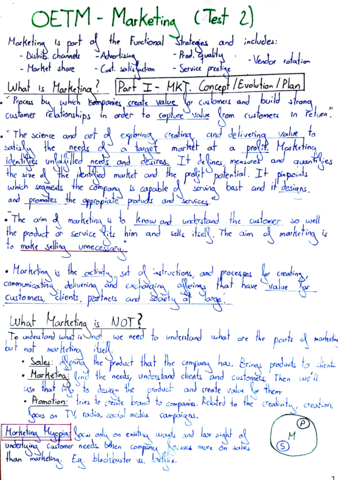 OETM - Marketing (Test 2)
Marketing is part of the Functional Strategies and includes:
- Distrib channels - Advertising - Prod. quality - Vendor rotation
- Market share - Cust. satisfaction - Service prestige
What is Marketing? Part I - MKT. Concept/Evolution/Plan
"Process by which companies create value for customers and build strong
customer relationships in order to capture value from customers in return."
"The science and art of exploring, creating, and delivering value to
satisfy the needs of a target market at a profit. Marketing
identifies unfulfilled needs and desires. It defines, measures and quantifies
the size of the identified market and the profit potential. It pinpoints
which segments the company is capable of serving best and it designs
and promotes the appropriate products and services."
"The aim of marketing is to know and understand the customer so well
the product or service fits him and sells itself. The aim of marketing is
to make selling unnecessary."
• Marketing is the activity, set of instructions, and processes for creating,
communicating, delivering and exchanging offerings that have value for
customers, clients, partners and society at large.
What Marketing is NOT?
To understand what is not, we need to understand what are the parts of marketing
but not marketing itself.
• Sales: offering the product that the company has. Brings products to clients.
• Marketing: find the needs, understand clients and customers. Then we'll
use that to design the product and create value for them.
• Promotion: tries to create brand to companies. Related to the creativity, creation,
focus on TV, radio, social media campaigns.
Marketing Myopia: focus only on existing wants and lose sight of
underlying customer needs. When company focuses more on sales
than marketing. Eg. blockbuster vs. Netflix.
P
M
S